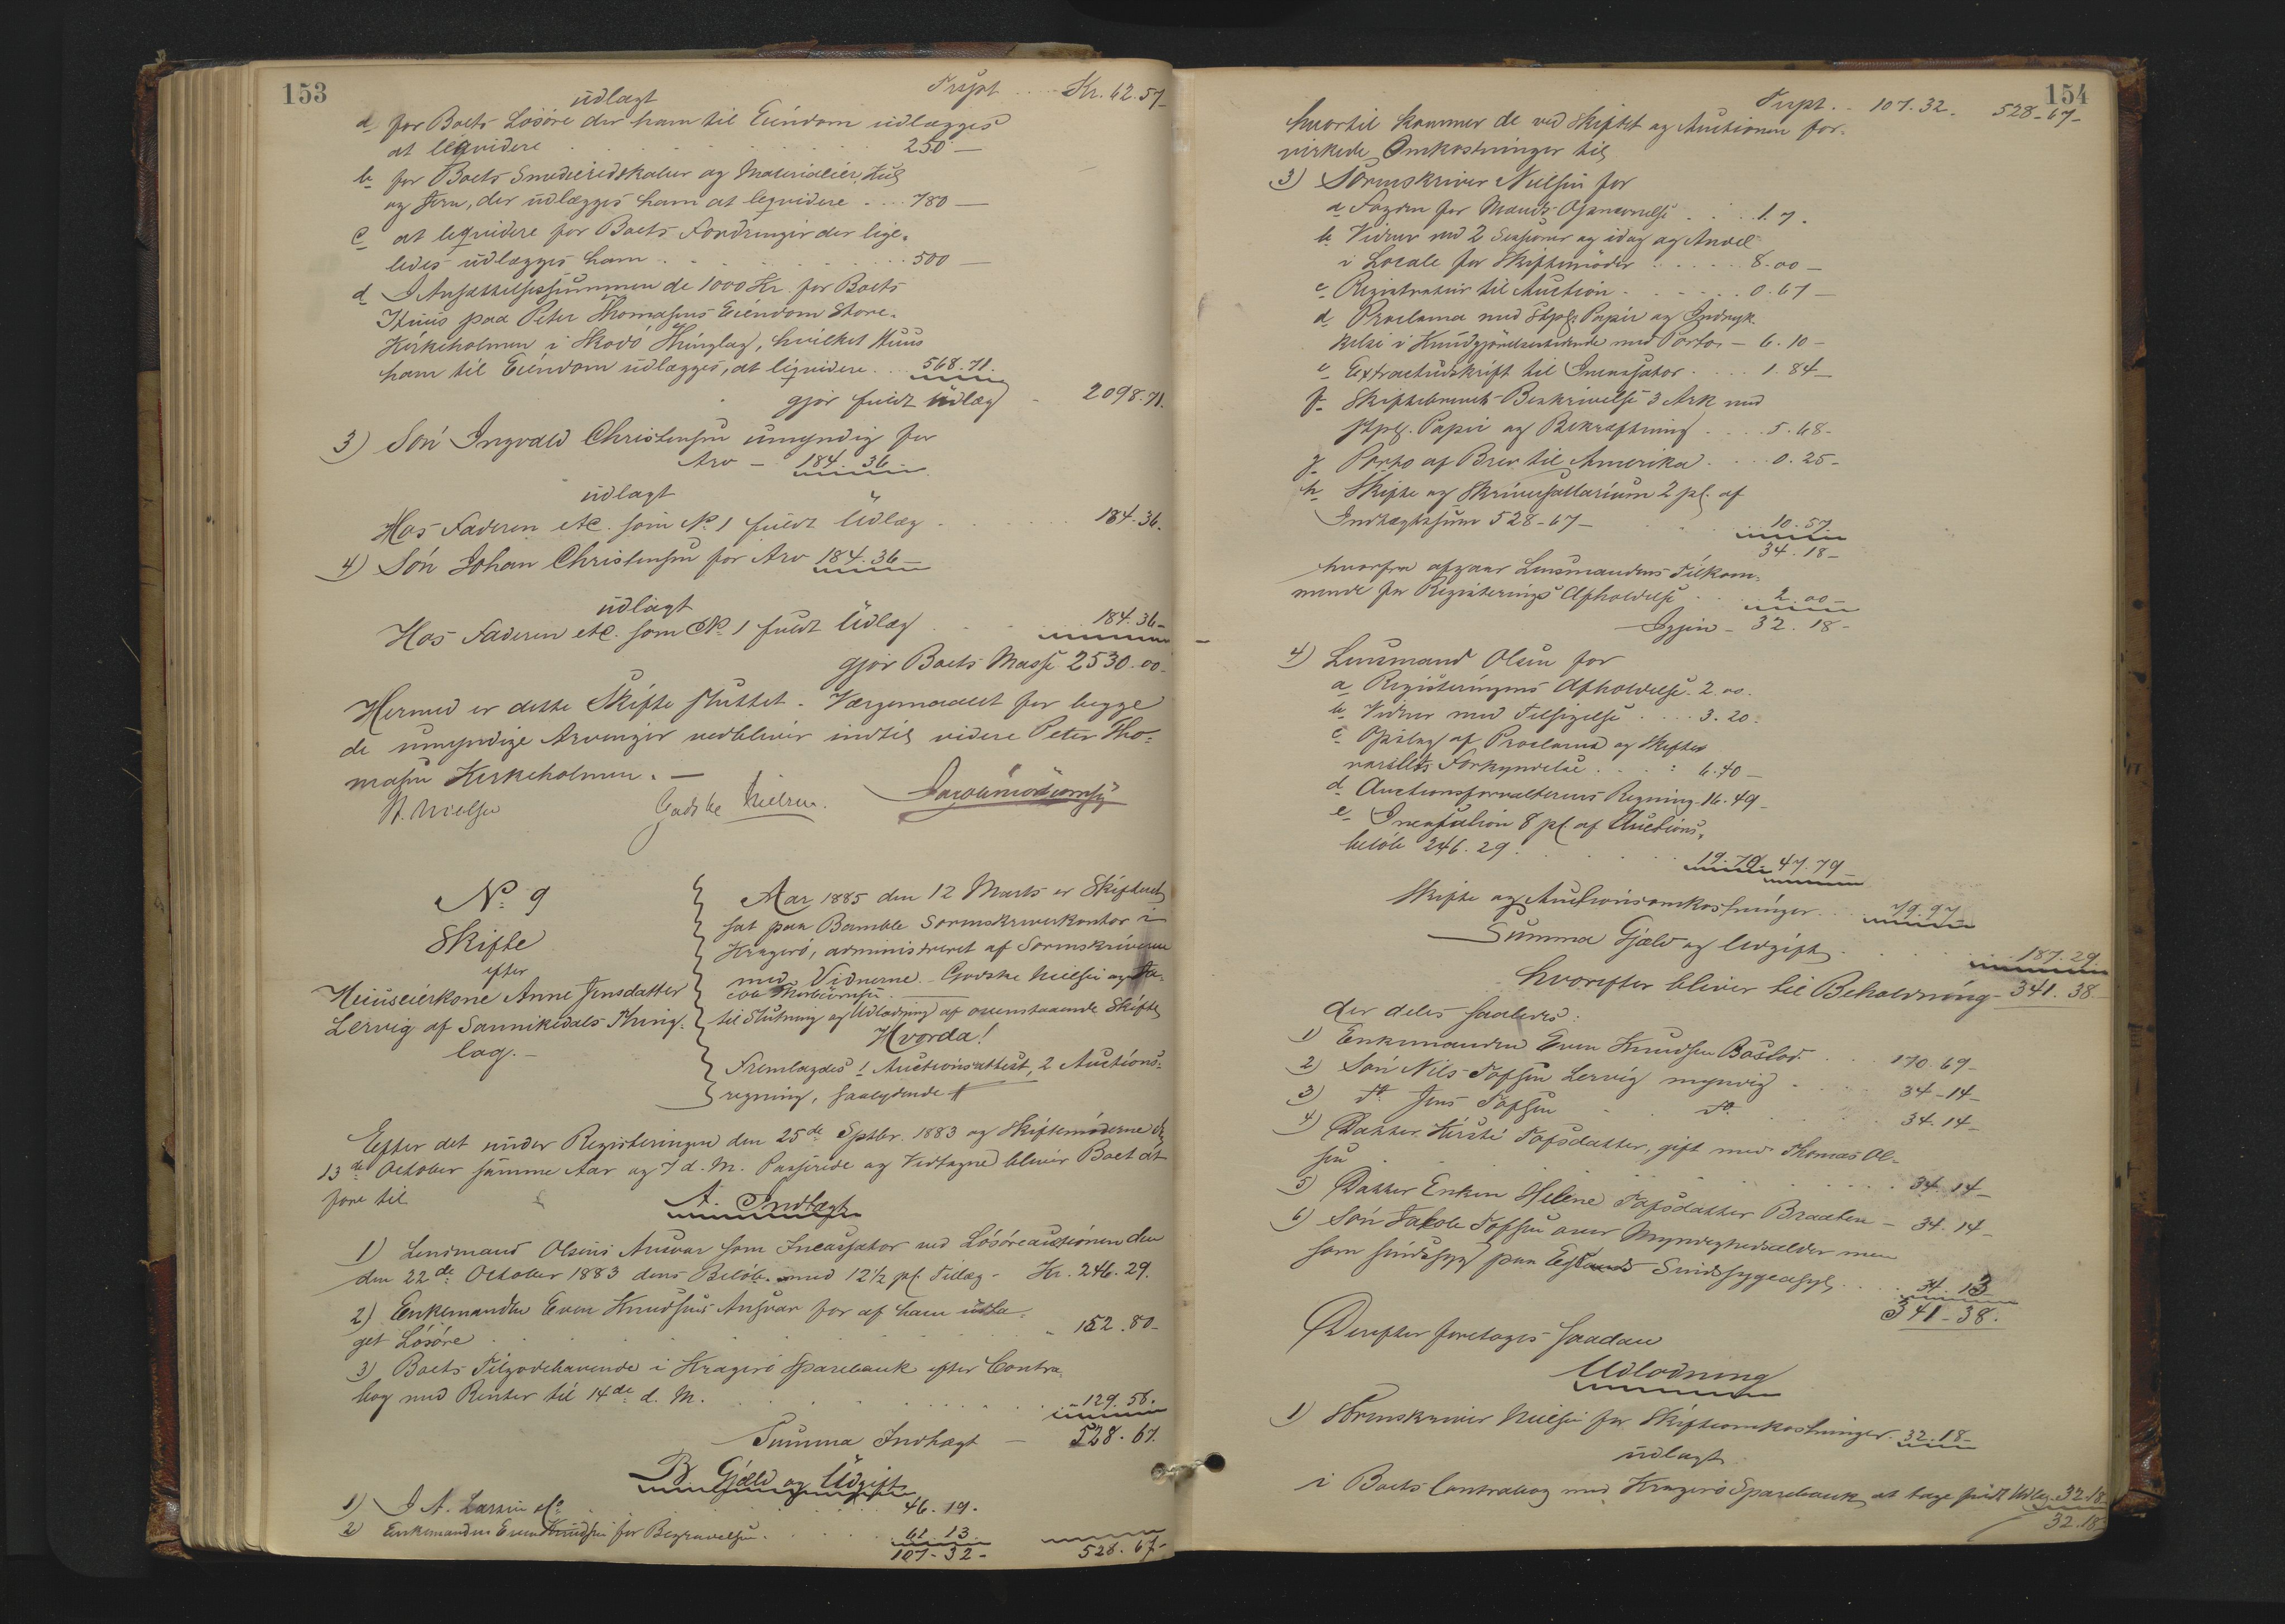 153
Trspt .... Kr. 62.57-
udlagt
a for Boets Lösöre der ham til Eiendom udlægges
at liqvidere . . . 250 -
b for Boets Smedieredskaber og Materialier Kul
og Jern, der udlægges ham at liqvidere ... 780 -
c at liqvidere for Boets Fordringer der lige-
ledes udlægges ham . . . 500 -
d I Ansættelsessummen de 1000 Kr. for Boets
Huus paa Peter Thomasens Eiendom Store-
Kirkeholmen i Skaatö Thinglag, hvilket Huus
ham til Eiendom udlægges, at liqvidere .. 568.71.
gjör fuldt Udlæg - 2098.71.
3) Sön Ingvald Christensen umyndig for
Arv - 184.36-
udlagt
Hos Faderen etc. som No 1 fuldt Udlæg . . . 184.36.
4) Sön Johan Christensen for Arv 184.36-
udlagt
Hos Faderen etc. som No 1 fuldt Udlæg . . . 184.36-
gjör Boets Masse 2530.00-
Hermed er dette Skifte sluttet. Værgemaalet for begge
de umyndige Arvinger vedbliver indtil videre Peter Tho-
masen Kirkeholmen. -
N. Nielsen Godske Nielsen.
No 9
Skifte
efter
Huuseierkone Anne Jensdatter
Lervig af Sannikedals Thing-
lag. -
Aar 1885 den 12 Marts er Skifteret
sat paa Bamble Sorenskriverkontor i
Kragerö, administreret af Sorenskriveren
med Vidnerne - Godske Nielsen og Ja-
cob Thorbiörnsen
til Slutning og Udlodning af ovenstaaende Skifte
Hvorda!
Fremlagdes 1 Auctionsattest, 2 Auctions-
regning, saalydende #
Efter det under Registeringen den 25de Septbr. 1883 og Skiftemöderne d.
13de October samme Aar og 7 d. M. Passerede og Vedtagne bliver Boet at
före til
A. Indtægt
1) Lensmand Olsens Ansvar som Incassator ved Lösöreauctionen den
den 22de October 1883 dens Belöb med 12½ pC. Tillæg - Kr. 246.29.
2) Enkemanden Even Knudsens Ansvar for af ham udta-
get Lösöre . . . " 152.80-
3) Boets Tilgodehavende i Kragerö Sparebank efter Contra-
bog med Renter til 14de d. M. . . . " 129.58.
Summa Indtægt - 528.67.
B. Gjæld og Udgift
1) I A. Larsen &c . . . 46.19.
2) Enkemanden Even Knudsen for Begravelsen . . . 61.13
107-32- 528.67-
154
Trspt. .. 107.32. 528-67-
hvortil kommer de ved Skiftet og Auctionen for-
virkede Omkostninger til
3) Sorenskriver Nielsen for
a Fogden for Mænds Opnævnelse . . . 1.07.
b Vidner ved 2 Sessioner og idag og Andel
i Locale for Skiftemöder . . . 8.00-
c Registratur til Auction . . . 0.67-
d Proclama med Stpl. Papir og Indryk-
kelse i Kundgjörelsestidende med Porto - 6.10-
e Extractudskrift til Incassator . . . 1.84-
f Skiftebrevets Beskrivelse 3 Ark med
stpl. Papir og Bekræftning . . . 5.68-
g Porto af Brev til Amerika . . . 0.25-
h Skifte og Skriversallarium 2 pC. af
Indtægtssum 528-67- . . . 10.57
34.18-
hvorfra afgaar Lensmandens Tilkom-
mende for Registerings Afholdelse . . . 2.00-
Igjen - 32.18-
4) Lensmand Olsen for
a Registeringens Afholdelse. 2.00.
b Vidner med Tilsigelse . . . 3.20.
c Opslag af Proclama og Skifte-
varslets Forkyndelse . . . 6.40-
d Auctionsforvalterens Regning. 16.49-
e Incassation 8 pC. af Auctions-
belöb 246.29 . . . 19.70. 47.79-
Skifte og Auctionsomkostninger . . . 79.97-
Summa Gjæld og Udgift . . . 187.29.
hvorefter bliver til Beholdning - 341.38-
der deles saaledes:
1) Enkemanden Even Knudsen . . . 170.69-
2) Sön Nils Tofsen Lervig myndig . . . 34-14-
3) do Jens Tofsen do . . . 34.14-
4) Datter Kirsti Tofsdatter, gift med Thomas Ol-
sen . . . 34.14-
5) Datter Enken Helene Tofsdatter Braaten - 34.14-
6) Sön Jakob Tofsen over Myndighedsalder men
som sindssyg paa Sindssygeasyl . . . 34.13
341-38.
Derefter foretoges saadan
Udlodning
1) Sorenskriver Nielsen for Skifteomkostninger. 32.18-
udlagt
i Boets Contrabog med Kragerö Sparebank at tage fuldt Udlæg. 32.18
32.18